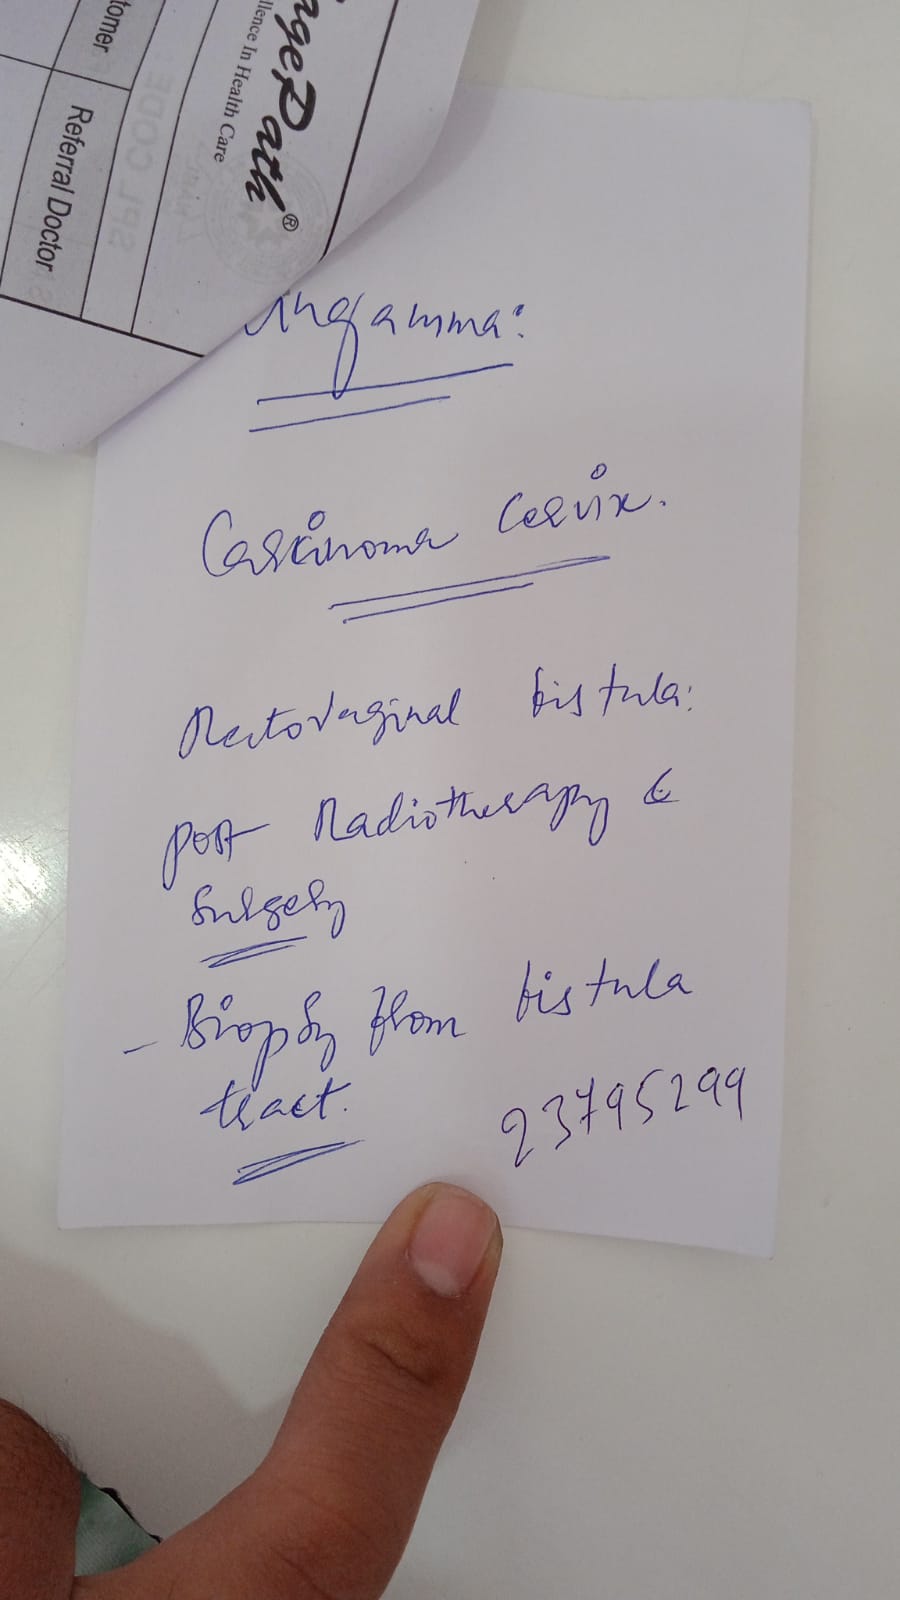 tomer
Referral Doctor
SPL CODE
agePath®
llence In Health Care
ingamma:
Carcinoma Cervix.
Rectovaginal fistula:
post Radiotherapy &
Surgery
- Biopsy from fistula
tract.
23795299